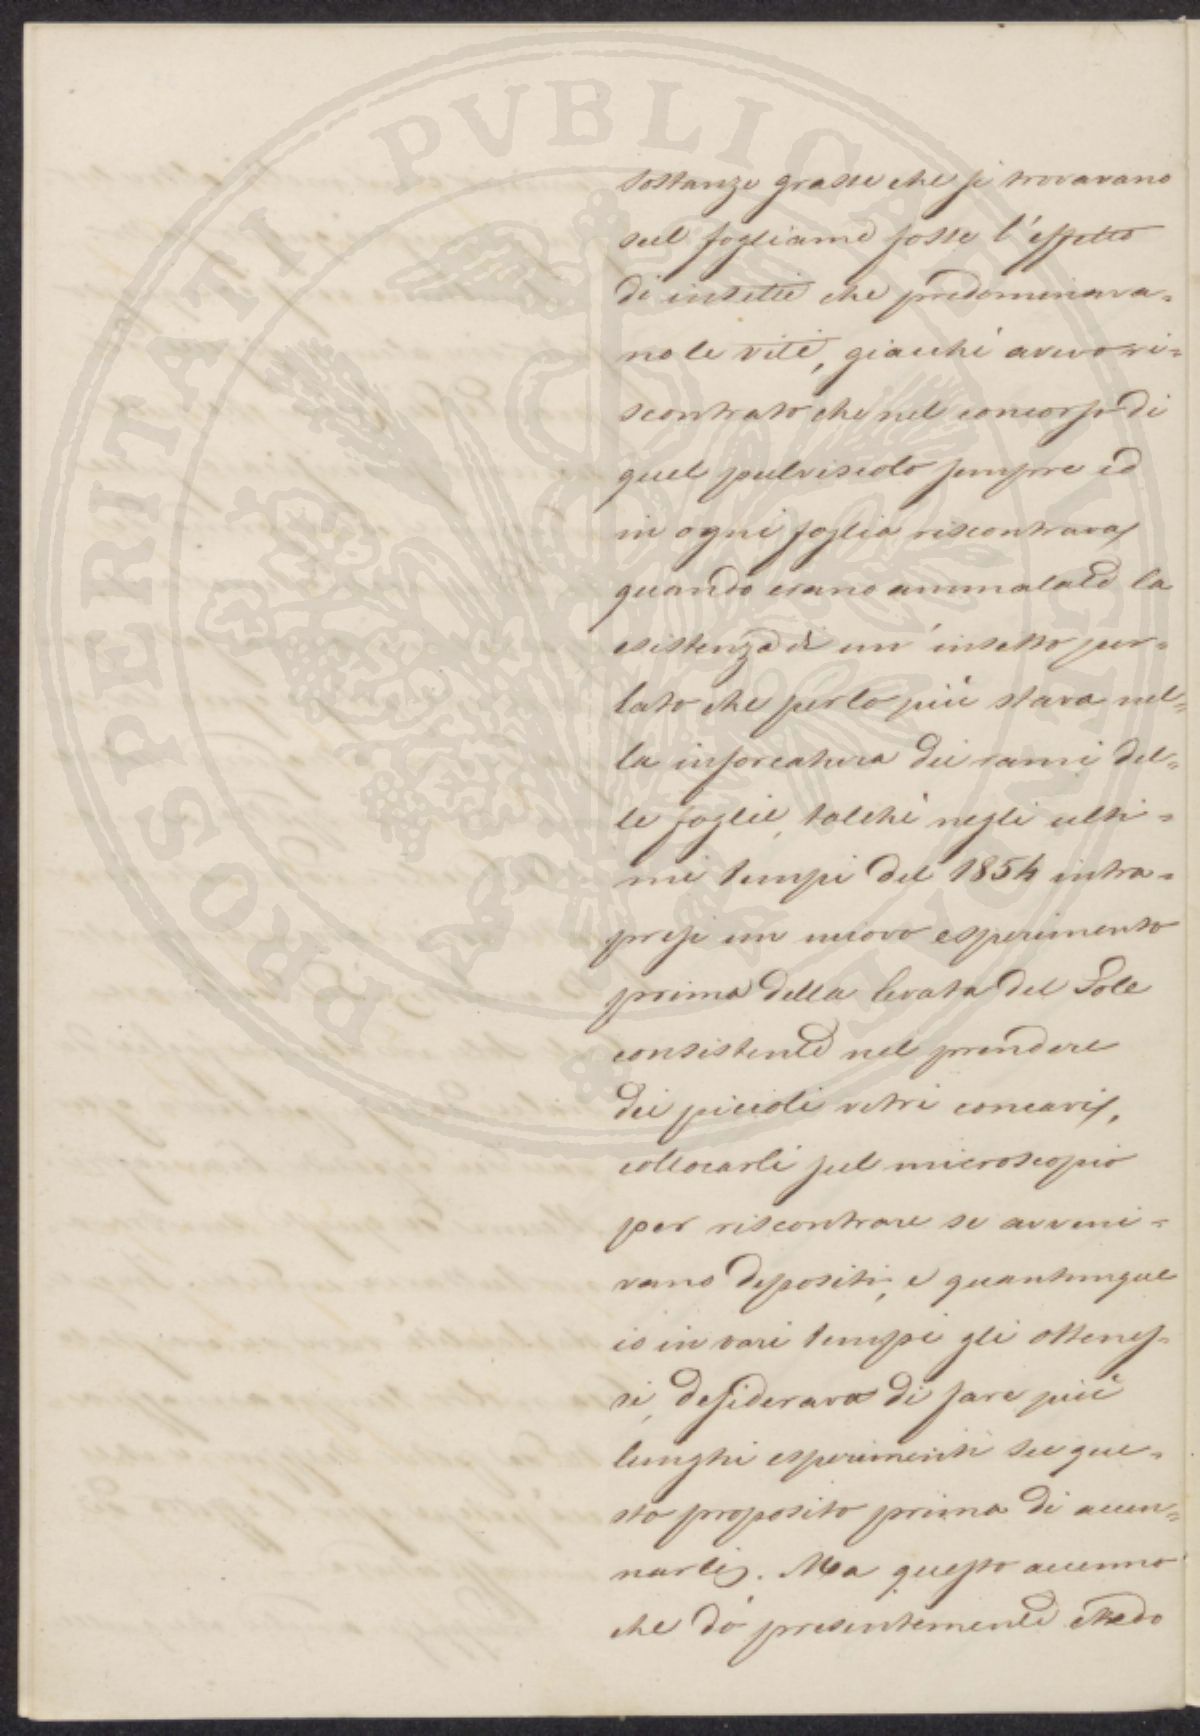 PROSPERITATI PVBLICAE AVGENDAE
sostanze grasse che si trovavano
sul fogliame fosse l'effetto
di insetti che predominava-
no le vite, giacchè avevo ri=
scontrato che nel concorso di
quel pulviscolo sempre ed
in ogni foglia riscontrava
quando erano ammalate la
esistenza di un' insetto per=
lato che per lo più stava nel=
la inforcatura dei rami del=
le foglie, talchè negli ulti=
mi tempi del 1854 intra=
presi un nuovo esperimento
prima della levata del Sole
consistente nel prendere
dei piccioli vetri concavi,
collocarli sul microscopio
per riscontrare se avveni=
vano depositi, e quantunque
io in vari tempi gli ottenes=
si, desiderava di fare più
lunghi esperimenti su que=
sto proposito prima di accen=
narli. Ma questo accenno
che dò presentemente credo